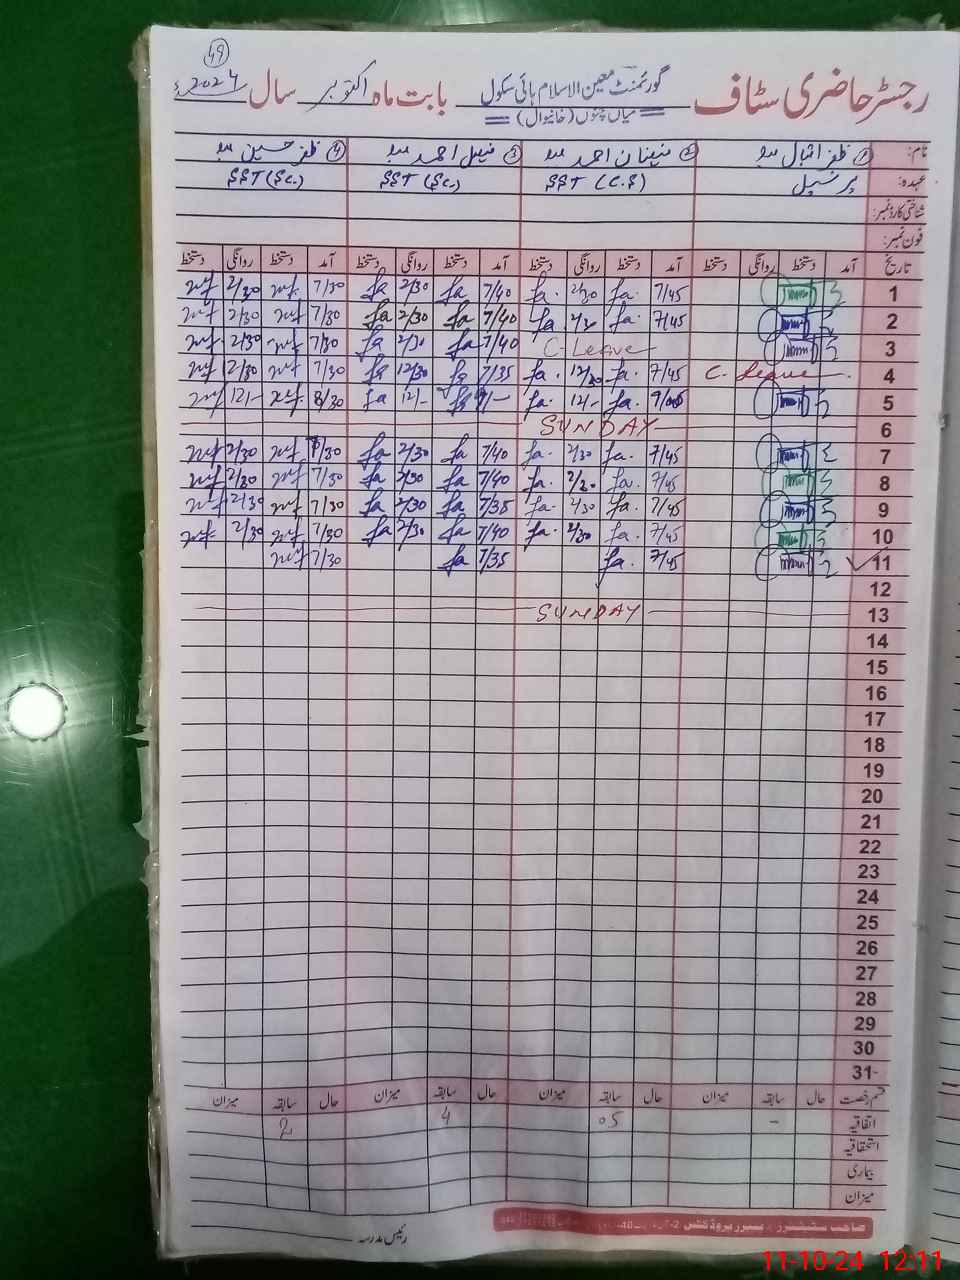 49
رجسٹر حاضری سٹاف گورنمنٹ معین الاسلام ہائی سکول بابت ماہ اکتوبر سال 2024ء
میاں چنوں (خانیوال)
نام: ① ظفر اقبال ② احمد ③ احمد ④ ظفر حسین
عہدہ: پرنسپل SST (C.S) SST (Sc.) SST (Sc.)
شناختی کارڈ نمبر:
فون نمبر:
تاریخ آمد دستخط روانگی دستخط آمد دستخط روانگی دستخط آمد دستخط روانگی دستخط آمد دستخط روانگی دستخط
1 7/45 fa. 2/30 fa. 7/40 fa 2/30 fa 7/30 2/30
2 7/45 fa. 2/30 fa. 7/40 fa 2/30 fa 7/30 2/30
3 C-Leave 7/40 fa 2/30 fa 7/30 2/30
4 C. Leave 7/45 fa. 12/30 fa. 7/35 fa 12/30 fa 7/30 2/30
5 9/00 fa. 12/- fa. 9/- 12/- fa 8/30 12/-
6 SUNDAY
7 7/45 fa. 2/30 fa. 7/40 fa 2/30 fa 7/30 2/30
8 7/45 fa. 2/30 fa. 7/40 fa 2/30 fa 7/30 2/30
9 7/45 fa. 2/30 fa. 7/35 fa 2/30 fa 7/30 2/30
10 7/45 fa. 2/30 fa. 7/40 fa 2/30 fa 7/30 2/30
11 7/45 fa. 7/35 fa 7/30
12
13 SUNDAY
14
15
16
17
18
19
20
21
22
23
24
25
26
27
28
29
30
31
قسم رخصت حال سابقہ میزان حال سابقہ میزان حال سابقہ میزان حال سابقہ میزان
اتفاقیہ - 05 4 2
استحقاقیہ
بیماری
میزان
رئیس مدرسہ
11-10-24 12:11